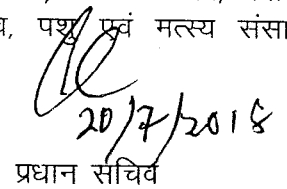 पशु एवं मत्स्य संसा
20/7/2018
प्रधान सचिव